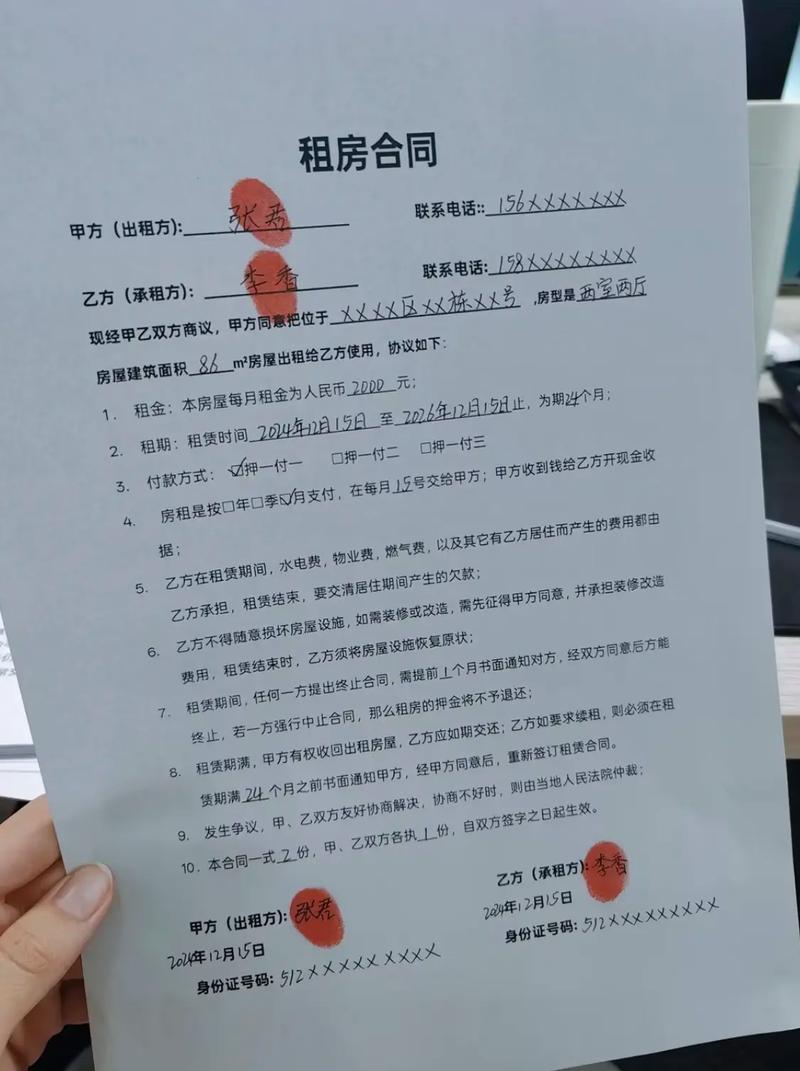 租房合同
甲方（出租方): 张君 联系电话:: 156XXXXXXX
乙方（承租方）： 李香 联系电话: 158XXXXXXXX
现经甲乙双方商议，甲方同意把位于 XXXX区XX栋XX号 ,房型是两室两厅
房屋建筑面积 86 m²房屋出租给乙方使用，协议如下：
1. 租金；本房屋每月租金为人民币 2000 元；
2. 租期：租赁时间 2024年12月15日 至 2026年12月15日止，为期24个月；
3. 付款方式：☑押一付一 □押一付二 □押一付三
4. 房租是按□年□季☑月支付，在每月15号交给甲方；甲方收到钱给乙方开现金收
据；
5. 乙方在租赁期间，水电费，物业费，燃气费，以及其它有乙方居住而产生的费用都由
乙方承担，租赁结束，要交清居住期间产生的欠款；
6. 乙方不得随意损坏房屋设施，如需装修或改造，需先征得甲方同意，并承担装修改造
费用，租赁结束时，乙方须将房屋设施恢复原状；
7. 租赁期间，任何一方提出终止合同，需提前1个月书面通知对方，经双方同意后方能
终止，若一方强行中止合同，那么租房的押金将不予退还；
8. 租赁期满，甲方有权收回出租房屋，乙方应如期交还；乙方如要求续租，则必须在租
赁期满 24 个月之前书面通知甲方，经甲方同意后，重新签订租赁合同。
9. 发生争议，甲、乙双方友好协商解决，协商不好时，则由当地人民法院仲裁；
10. 本合同一式 2 份，甲、乙双方各执 1 份，自双方签字之日起生效。
甲方（出租方）: 张君 乙方（承租方）: 李香
2024年12月15日 2024年12月15日
身份证号码: 512XXXXXXXXX 身份证号码: 512XXXXXXXXX